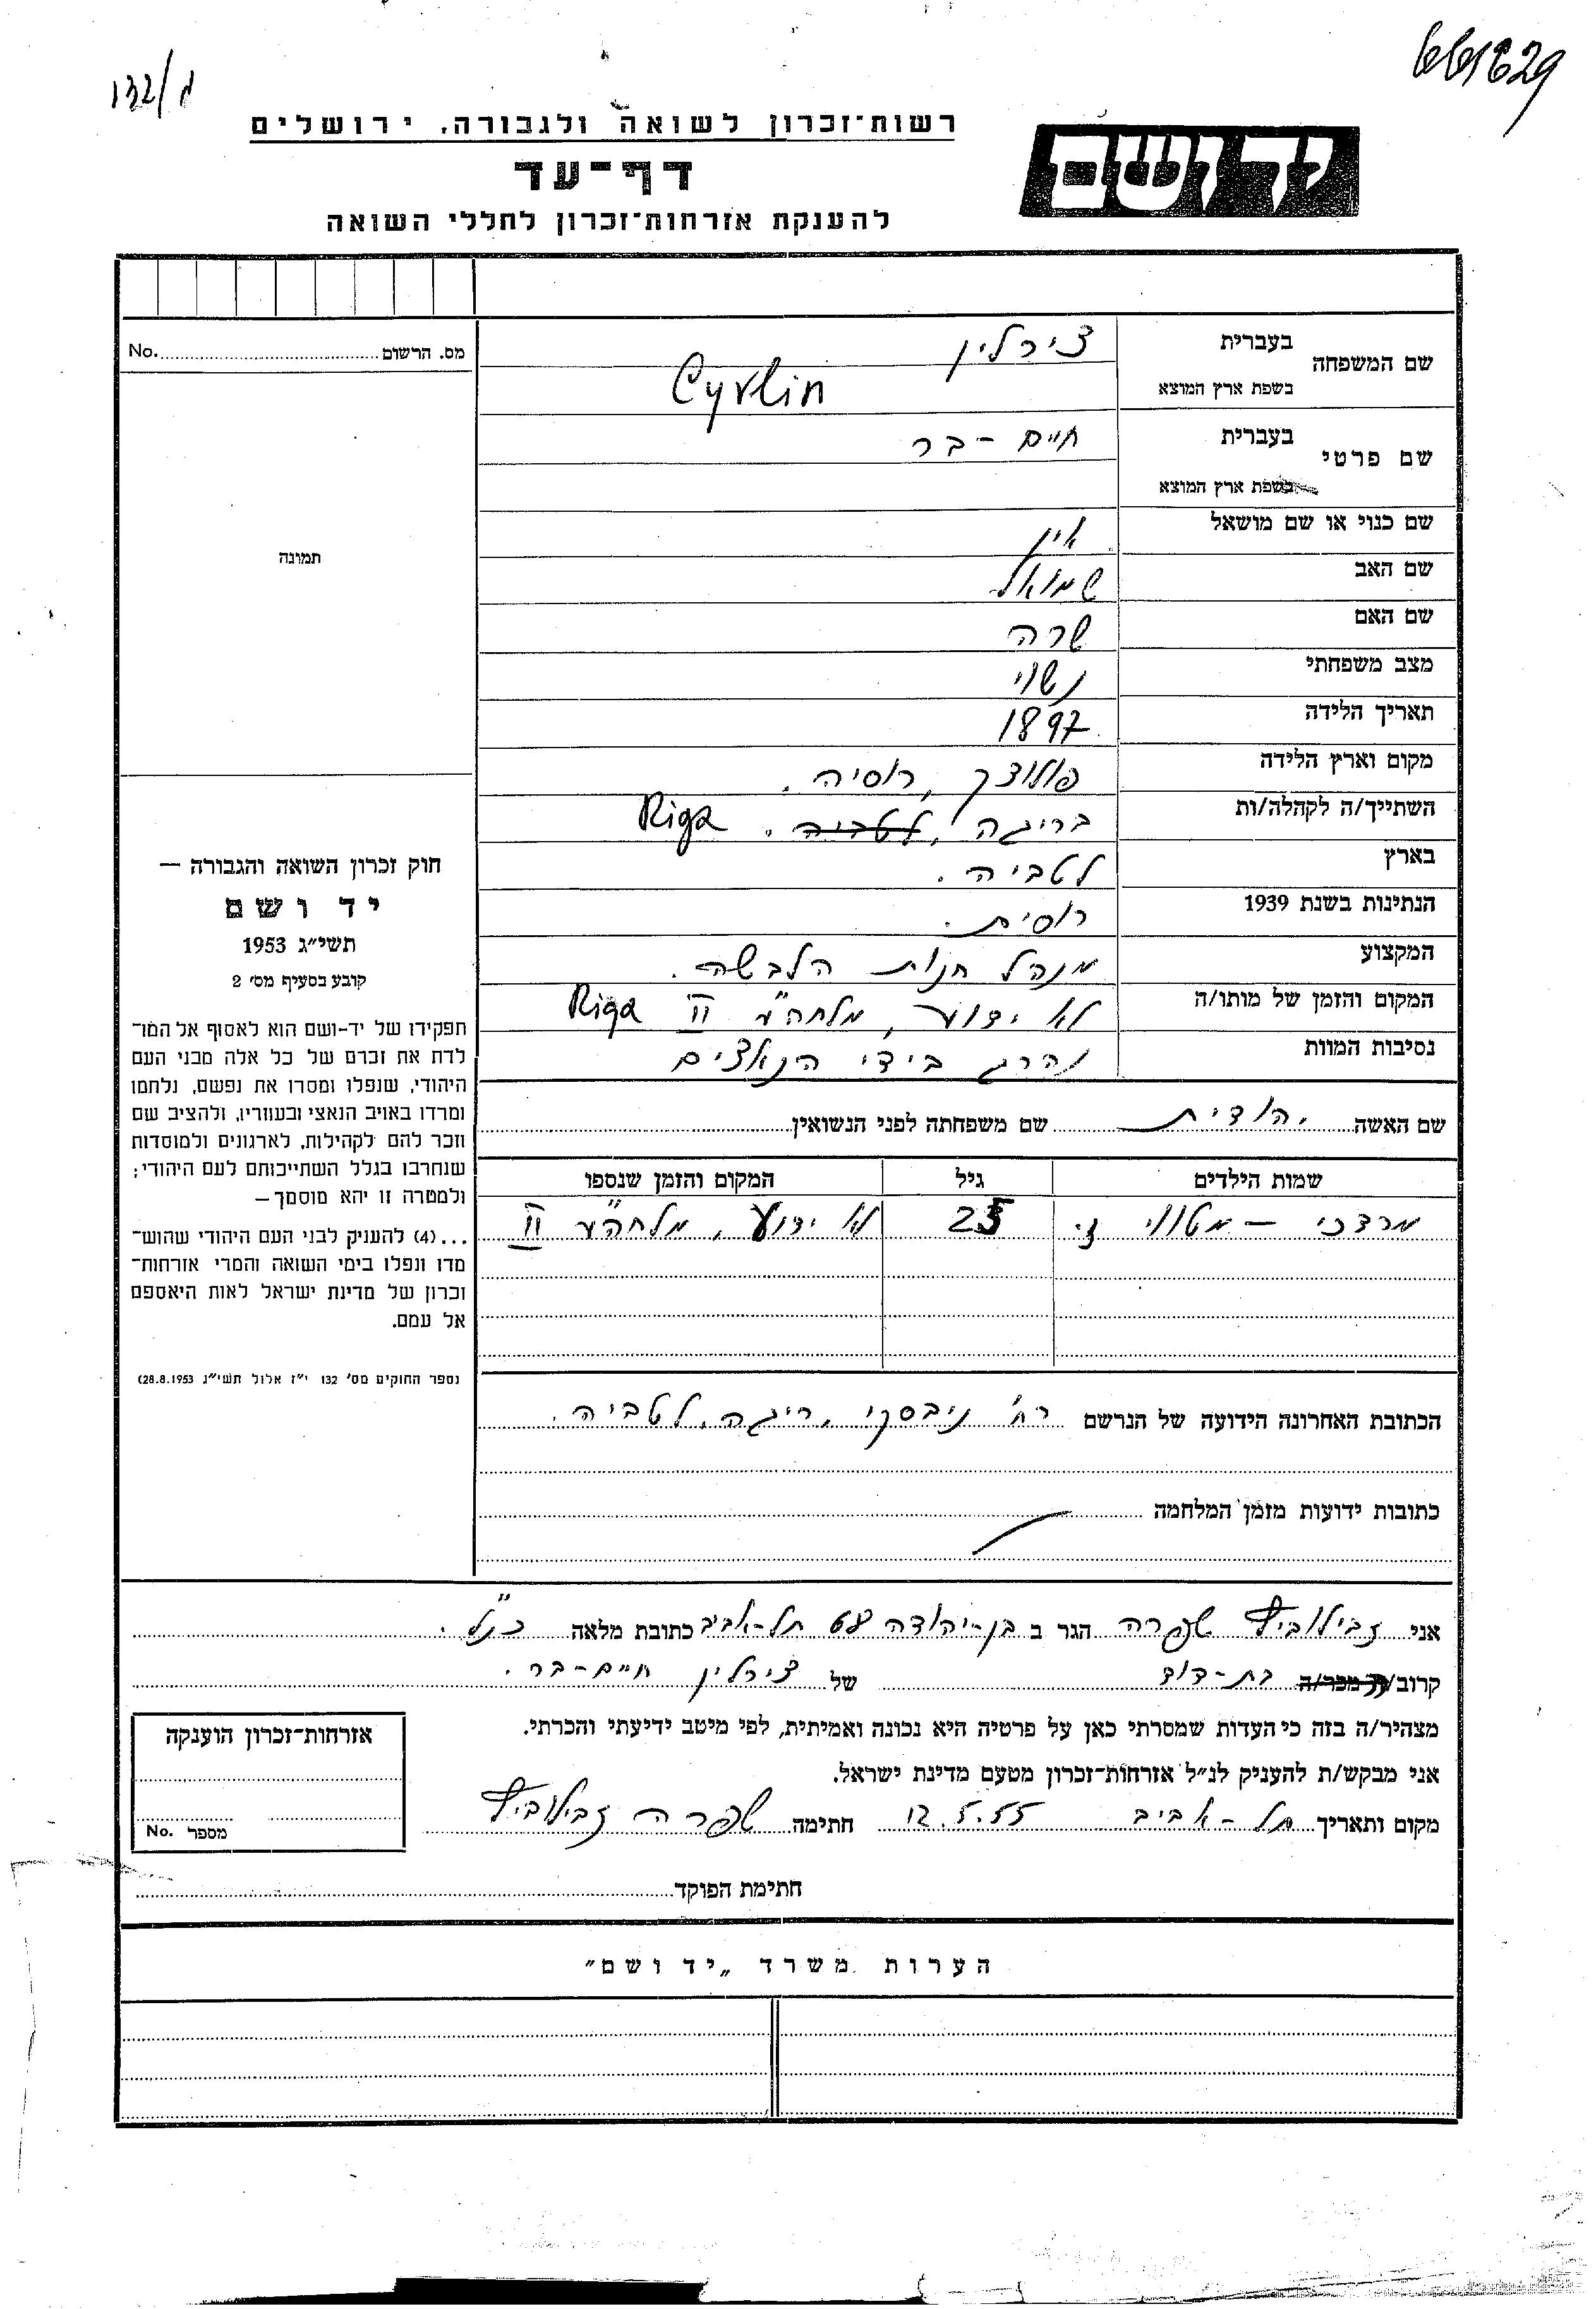 661829
132/ג
יד ושם
רשות־זכרון לשואה ולגבורה, ירושלים
דף־עד
להענקת אזרחות־זכרון לחללי השואה
מס. הרשום No.
תמונה
שם המשפחה בעברית צירלין
בשפת ארץ המוצא Cyrlin
שם פרטי בעברית חיים - בר
בשפת ארץ המוצא
שם כנוי או שם מושאל אין
שם האב שמואל
שם האם שרה
מצב משפחתי נשוי
תאריך הלידה 1897
מקום וארץ הלידה פולוצק, רוסיה.
השתייך/ה לקהלה/ות בריגה, לטביה. Riga
בארץ לטביה.
הנתינות בשנת 1939 רוסית.
המקצוע מנהל חנות הלבשה.
המקום והזמן של מותו/ה לא ידוע, מלחה"ע II Riga
נסיבות המוות נהרג בידי הנאצים
שם האשה יהודית שם משפחתה לפני הנשואין
שמות הילדים גיל המקום והזמן שנספו
מרדכי - מטווי ז. 23 לא ידוע, מלחה"ע II
הכתובת האחרונה הידועה של הנרשם רח' ניבסקי, ריגה, לטביה.
כתובות ידועות מזמן המלחמה
חוק זכרון השואה והגבורה —
יד ושם
תשי״ג 1953
קובע בסעיף מס׳ 2
תפקידו של יד-ושם הוא לאסוף אל המו־
לדת את זכרם של כל אלה מבני העם
היהודי, שנפלו ומסרו את נפשם, נלחמו
ומרדו באויב הנאצי ובעוזריו, ולהציב שם
וזכר להם לקהילות, לארגונים ולמוסדות
שנחרבו בגלל השתייכותם לעם היהודי;
ולמטרה זו יהא מוסמך—
...(4) להעניק לבני העם היהודי שהוש־
מדו ונפלו בימי השואה והמרי אזרחות־
זכרון של מדינת ישראל לאות היאספם
אל עמם.
(ספר החוקים מס׳ 132 י״ז אלול תשי״ג 28.8.1953)
אני זבילוביץ שפרה הגר ב בן-יהודה 68 תל-אביב כתובת מלאה כנ"ל.
קרוב/ה מכר/ה בת-דוד של צירלין חיים-בר.
מצהיר/ה בזה כי העדות שמסרתי כאן על פרטיה היא נכונה ואמיתית, לפי מיטב ידיעתי והכרתי.
אני מבקש/ת להעניק לנ״ל אזרחות־זכרון מטעם מדינת ישראל.
מקום ותאריך תל-אביב 12.5.55 חתימה שפרה זבילוביץ
אזרחות־זכרון הוענקה
מספר No.
חתימת הפוקד
הערות משרד „יד ושם״